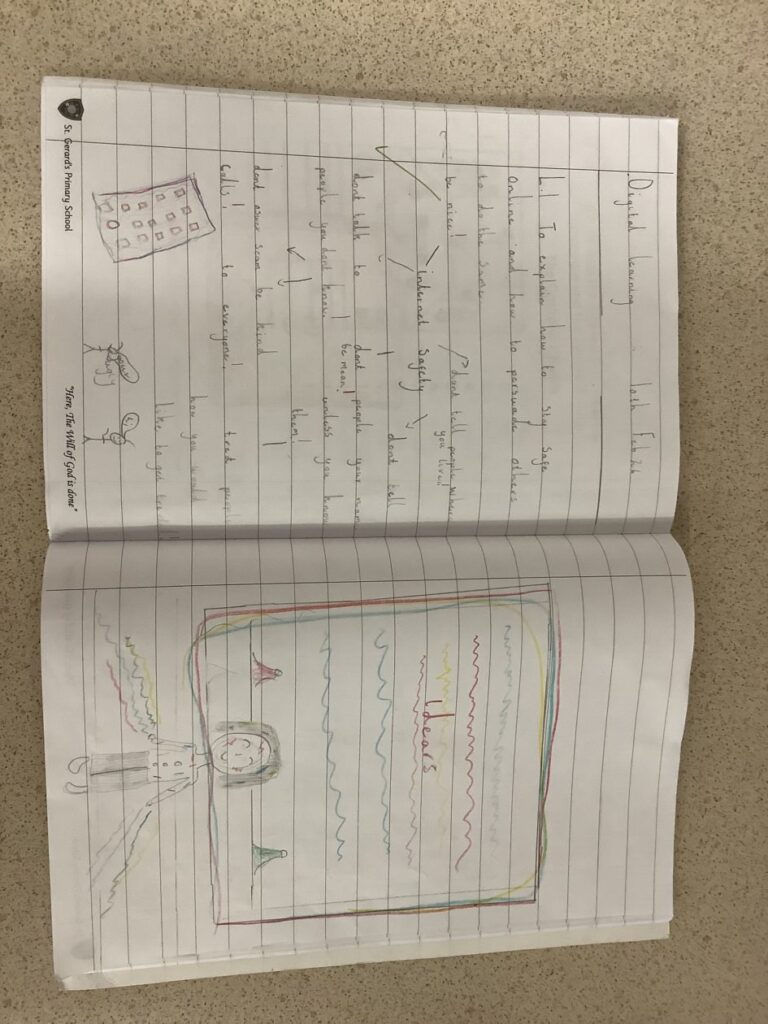 Digital learning 10th Feb 26
L.I To explain how to sty safe
online and how to persuade others
to do the same.
be nice!
dont tell people where
you live!
internet safety
dont tell
people your name
unless you know
them!
dont talk to
people you dont know!
dont
be mean!
dont scam
calls!
be kind
to everyone!
how you would
like to get
hi
St. Gerard's Primary School
"Here, The Will of God is done"
idears